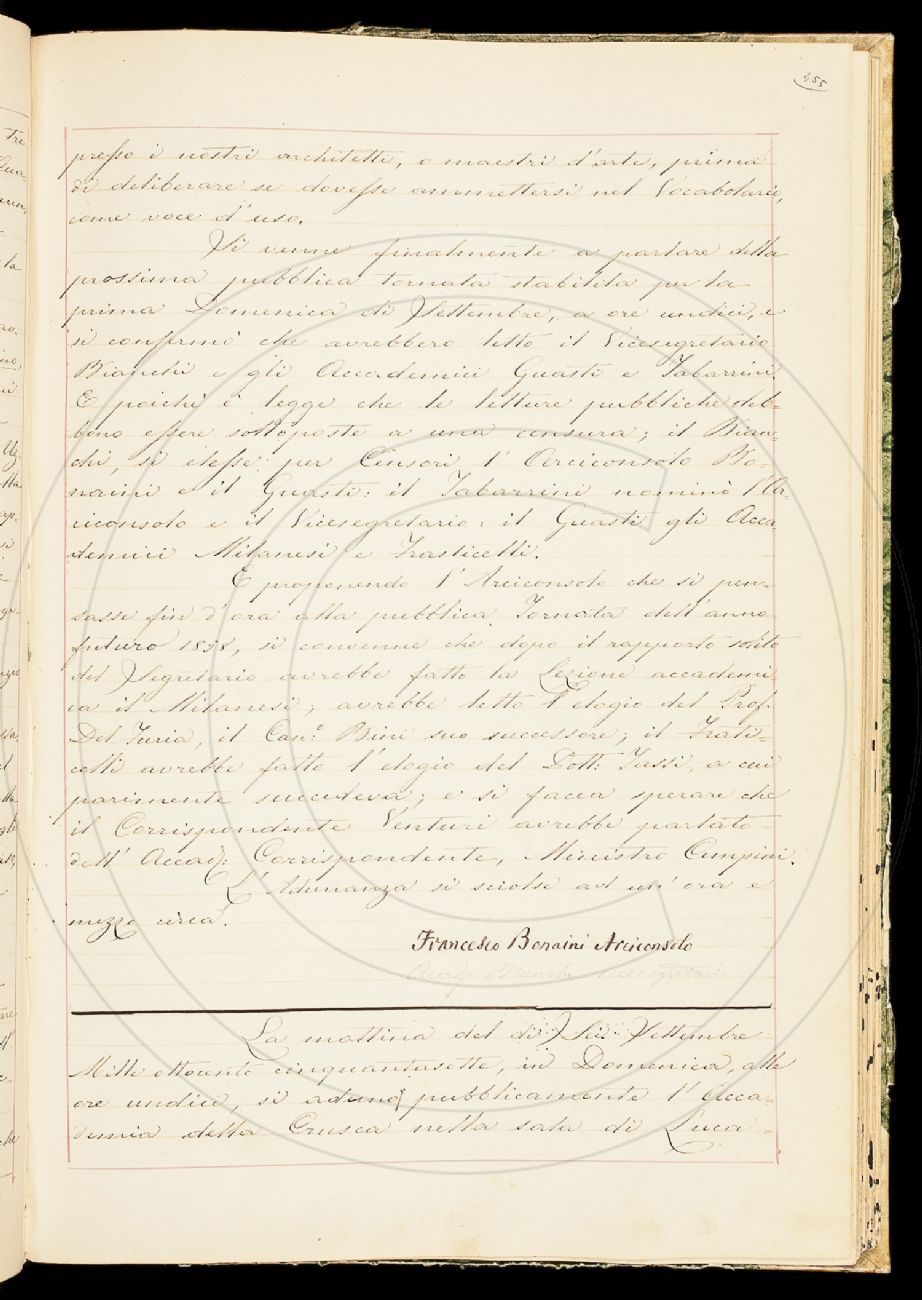 455
presso i nostri architetti, o maestri d'arte, prima
di deliberare se dovesse ammettersi nel Vocabolario,
come voce d'uso.
Si venne finalmente a parlare della
prossima pubblica tornata stabilita per la
prima Domenica di Settembre, a ore undici, e
si confermò che avrebbero letto il Vicesegretario
Bianchi e gli Accademici Guasti e Tabarrini.
E poichè è legge che le letture pubbliche deb-
bono essere sottoposte a una censura; il Bian-
chi, si elesse per Censori l'Arciconsolo Bo-
naini e il Guasti: il Tabarrini nominò l'Ar-
ciconsolo e il Vicesegretario: il Guasti gli Acca-
demici Milanesi e Fraticelli.
E proponendo l'Arciconsolo che si pen-
sasse fin d'ora alla pubblica Tornata dell'anno
futuro 1858, si convenne che dopo il rapporto solito
del Segretario avrebbe fatto la Lezione accademi-
ca il Milanesi; avrebbe letto l'elogio del Prof.
Del Furia, il Can.º Bini suo successore; il Frati-
celli avrebbe fatto l'elogio del Dott: Tassi, a cui
parimente succedeva; e si facea sperare che
il Corrispondente Venturi avrebbe parlato
dell' Accad: Corrispondente, Ministro Cempini.
L'Adunanza si sciolse ad un'ora e
mezzo circa.
Francesco Bonaini Arciconsolo
Bianchi Vicesegretario
La mattina del dì Sei Settembre
Mille ottocento cinquantasette, in Domenica, alle
ore undici, si adunò pubblicamente l'Acca-
demia della Crusca nella sala di Luca